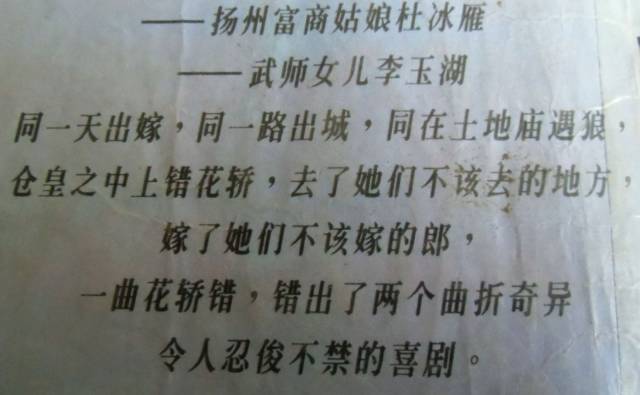 ——扬州富商姑娘杜冰雁
——武师女儿李玉湖
同一天出嫁，同一路出城，同在土地庙遇狼，
仓皇之中上错花轿，去了她们不该去的地方，
嫁了她们不该嫁的郎，
一曲花轿错，错出了两个曲折奇异
令人忍俊不禁的喜剧。